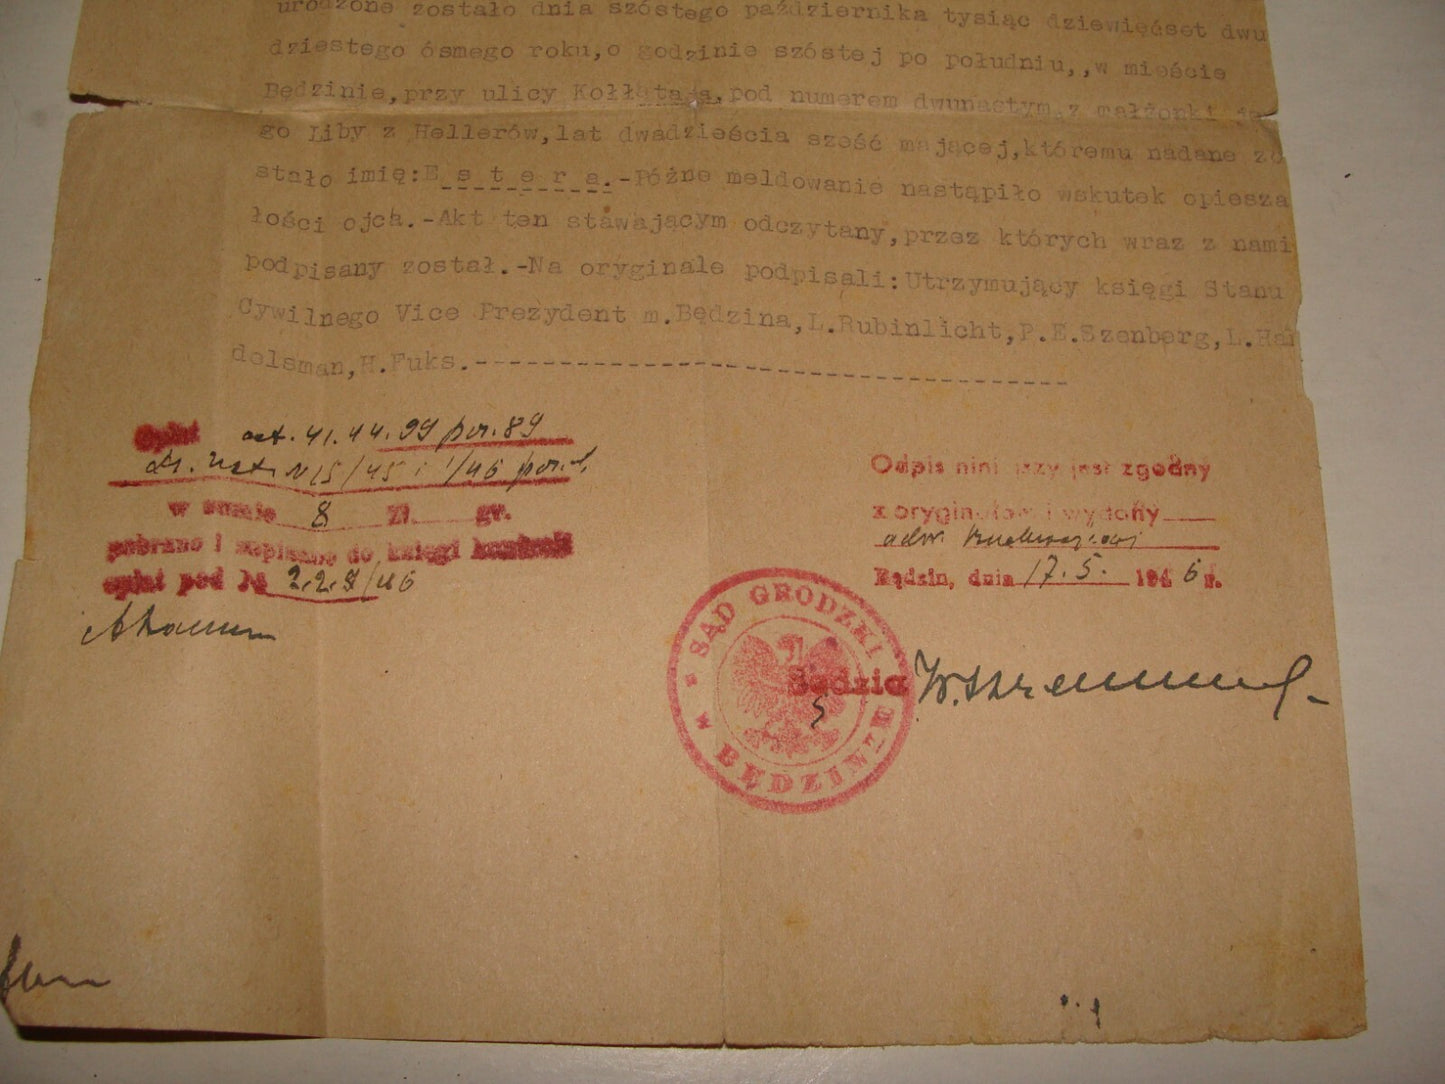 urodzone zostało dnia szóstego października tysiąc dziewięćset dwu
dziestego ósmego roku,o godzinie szóstej po południu,,w mieście
Będzinie,przy ulicy Kołłątaja,pod numerem dwunastym,z małżonki je
go Liby z Hellerów,lat dwadzieścia sześć mającej,któremu nadane zo
stało imię:E s t e r a.-Późne meldowanie nastąpiło wskutek opiesza
łości ojca.-Akt ten stawającym odczytany,przez których wraz z nami
podpisany został.-Na oryginale podpisali:Utrzymujący księgi Stanu
Cywilnego Vice Prezydent m.Będzina,L.Rubinlicht,P.E.Szenberg,L.Han
delsman,H.Fuks.-
Opłat art. 41.44.99 por. 89
dz. Ust. N 15/45 i 1/46 poz. 1,
w sumie 8 Zł. gr.
pobrano i zapisano do księgi kontroli
opłat pod № 228/46
Odpis niniejszy jest zgodny
z oryginałem i wydany
adw.
Będzin, dnia 17.5. 1946 r.
SĄD GRODZKI
w BĘDZINIE
Sędzia